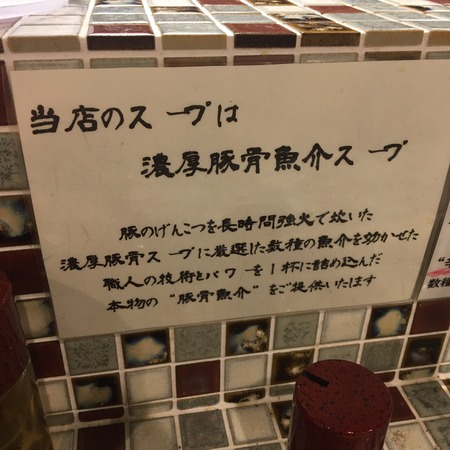 当店のスープは
濃厚豚骨魚介スープ
豚のげんこつを長時間強火で炊いた
濃厚豚骨スープに厳選した数種の魚介を効かせた
職人の技術とパワーを1杯に詰め込んだ
本物の"豚骨魚介"をご提供いたします
数種